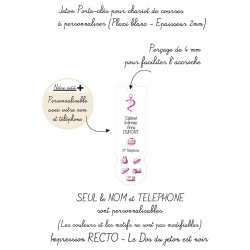 Jeton Porte-clés pour chariot de courses
à personnaliser (Plexi blanc - Epaisseur 2mm)
Perçage de 4 mm
pour faciliter l'accroche
Votre petit +
Personnalisable
avec votre nom
et téléphone !
Cabinet
Infirmier
Anne
DUPONT
N° Téléphone
SEUL le NOM et TELEPHONE
sont personnalisables
(Les couleurs et les motifs ne sont pas modifiables)
Impression RECTO - Le Dos du jeton est noir